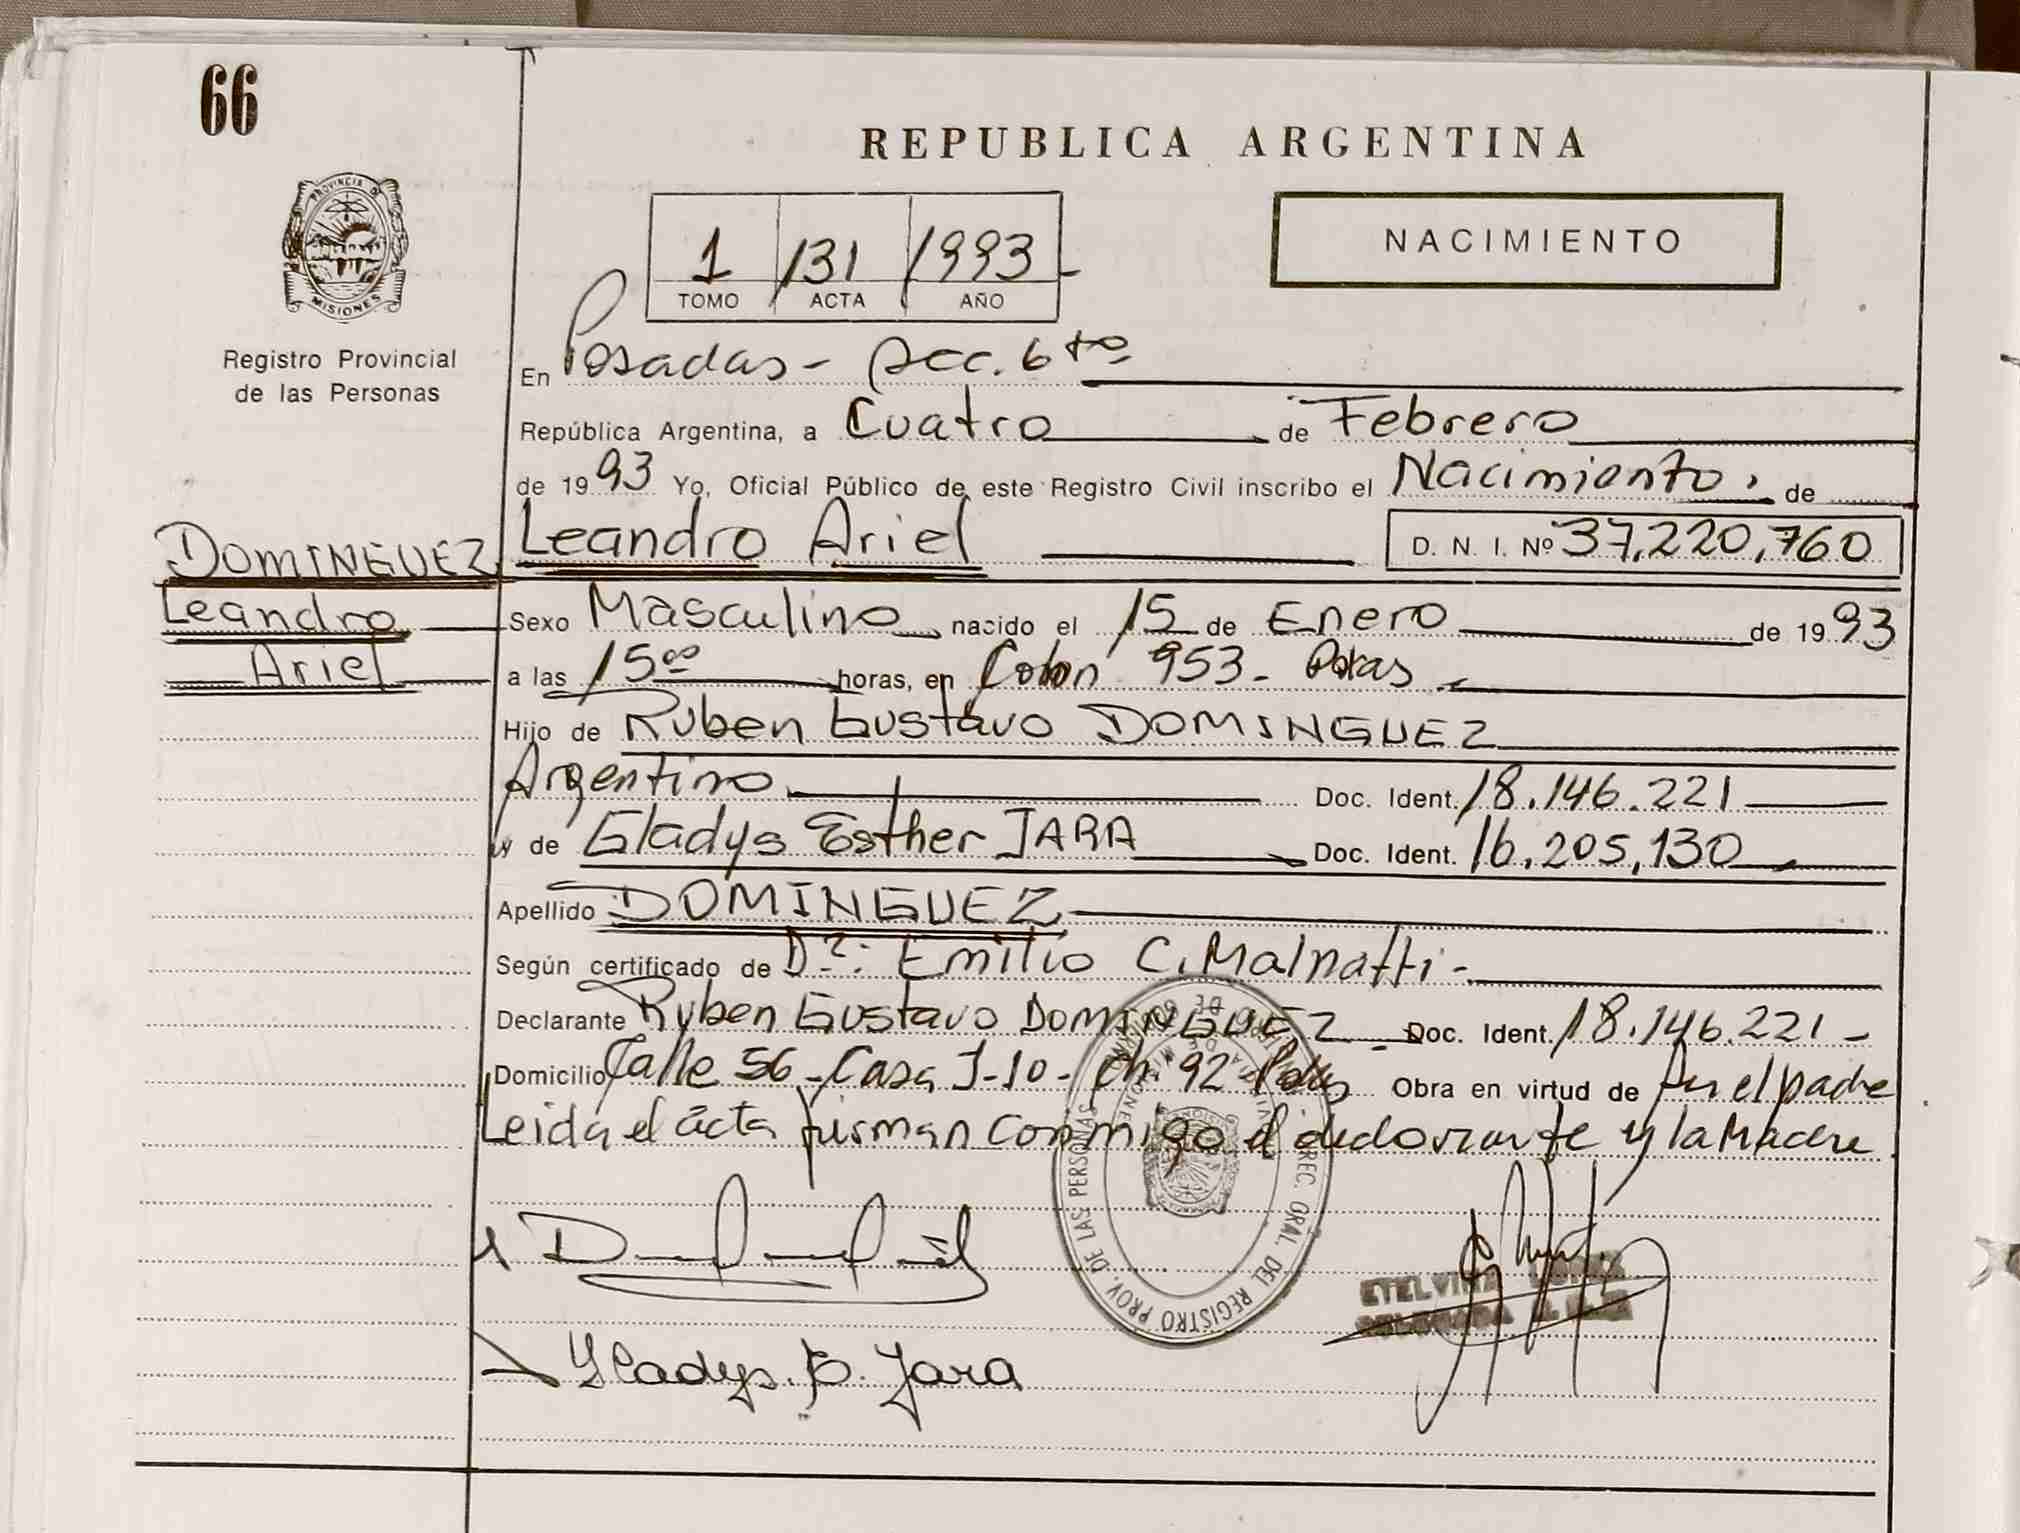 66
REPUBLICA ARGENTINA
PROVINCIA D
MISIONES
Registro Provincial
de las Personas
NACIMIENTO
1 131 1993
TOMO ACTA AÑO
En Posadas - Sec. 6ta
República Argentina, a Cuatro de Febrero
de 1993 Yo, Oficial Público de este Registro Civil inscribo el Nacimiento. de
DOMINGUEZ Leandro Ariel D. N. I. Nº 37,220,760
Leandro Sexo Masculino nacido el 15 de Enero de 1993
Ariel a las 15 00 horas, en Colon 953 - Pdas
Hijo de Ruben Gustavo DOMINGUEZ
Argentino Doc. Ident. 18.146.221
y de Gladys Esther JARA Doc. Ident. 16.205,130
Apellido DOMINGUEZ
Según certificado de Dr: Emilio C. Malnatti -
Declarante Ruben Gustavo DOMINGUEZ - Doc. Ident. 18.146.221 -
Domicilio Calle 56 - Casa J-10 - Ch. 92 Pdas Obra en virtud de ser el padre
Leida el acta firman conmigo el declarante y la Madre
REC. GRAL. DEL REGISTRO PROV. DE LAS PERSONAS
ETELVINA
Gladys. E. Jara